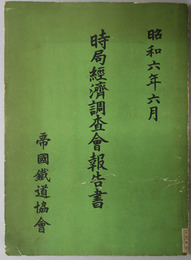 昭和六年六月
時局經濟調査會報告書
帝國鐵道協會